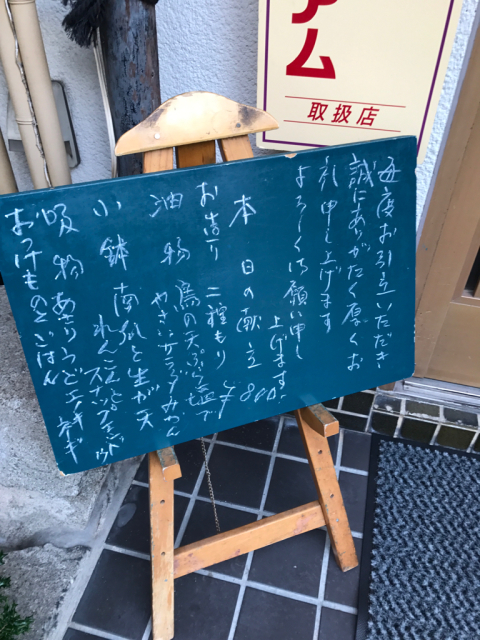 アム
取扱店
毎度お引立いただき
誠にありがたく厚くお
礼申し上げます
よろしく御願い申し
上げます。
本日の献立 ¥800
お造り 二種もり
油物 鳥の天ぷら塩で
やさいサラダみつん
小鉢 南瓜と生が天
れん
吸物 あさりうどエノキ ネギ
おつけものとごはん